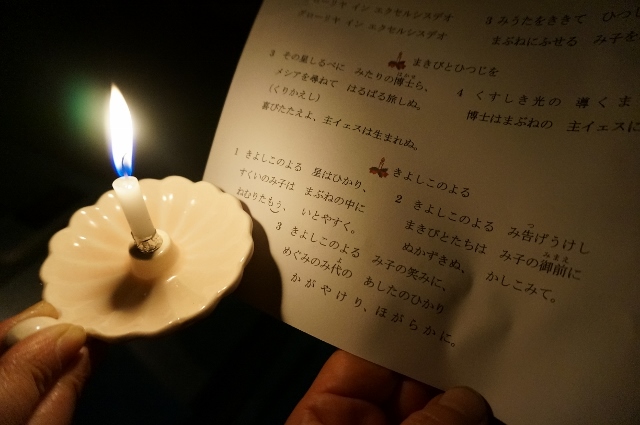 グローリヤ イン エクセルシスデオ
グローリヤ イン エクセルシスデオ
3 みうたをききて ひつじ
まぶねにふせる み子を
まきびとひつじを
3 その星しるべに みたりの博士ら、
はかせ
メシアを尋ねて はるばる旅しぬ。
(くりかえし)
喜びたたえよ、主イェスは生まれぬ。
4 くすしき光の 導くま
博士はまぶねの 主イェスに
きよしこのよる
1 きよしこのよる 星はひかり、
すくいのみ子は まぶねの中に
ねむりたもう、 いとやすく。
2 きよしこのよる み告げうけし
つ
まきびとたちは み子の御前に
みまえ
ぬかずきぬ、 かしこみて。
3 きよしこのよる み子の笑みに、
めぐみのみ代の あしたのひかり
よ
かがやけり、ほがらかに。